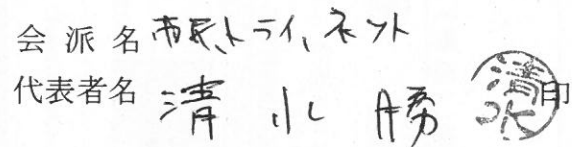 会派名 市民、トライ、ネット
代表者名 清水勝 清水 印